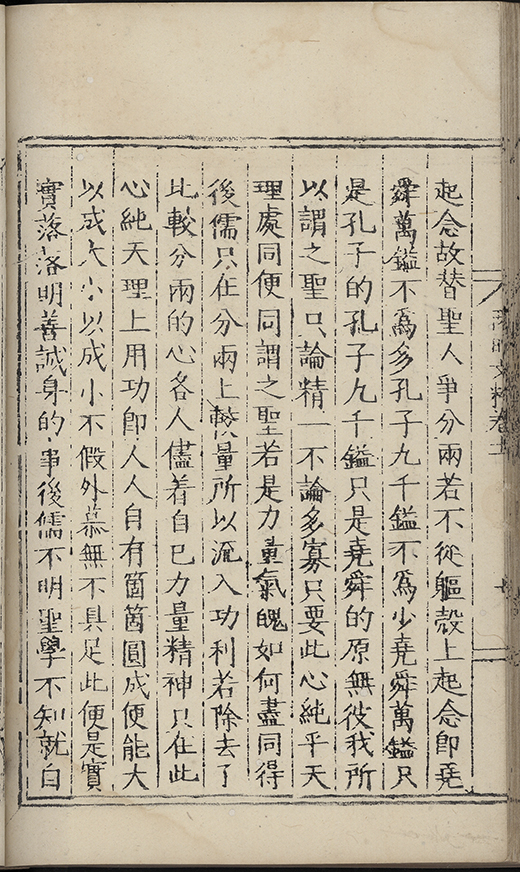 起念故替聖人爭分兩若不從軀殼上起念卽堯
舜萬鎰不爲多孔子九千鎰不爲少堯舜萬鎰只
是孔子的孔子九千鎰只是堯舜的原無彼我所
以謂之聖只論精一不論多寡只要此心純乎天
理處同便同謂之聖若是力量氣魄如何盡同得
後儒只在分兩上較量所以流入功利若除去了
比較分兩的心各人儘着自已力量精神只在此
心純天理上用功卽人人自有箇箇圓成便能大
以成大小以成小不假外慕無不具足此便是實
實落落明善誠身的事後儒不明聖學不知就自